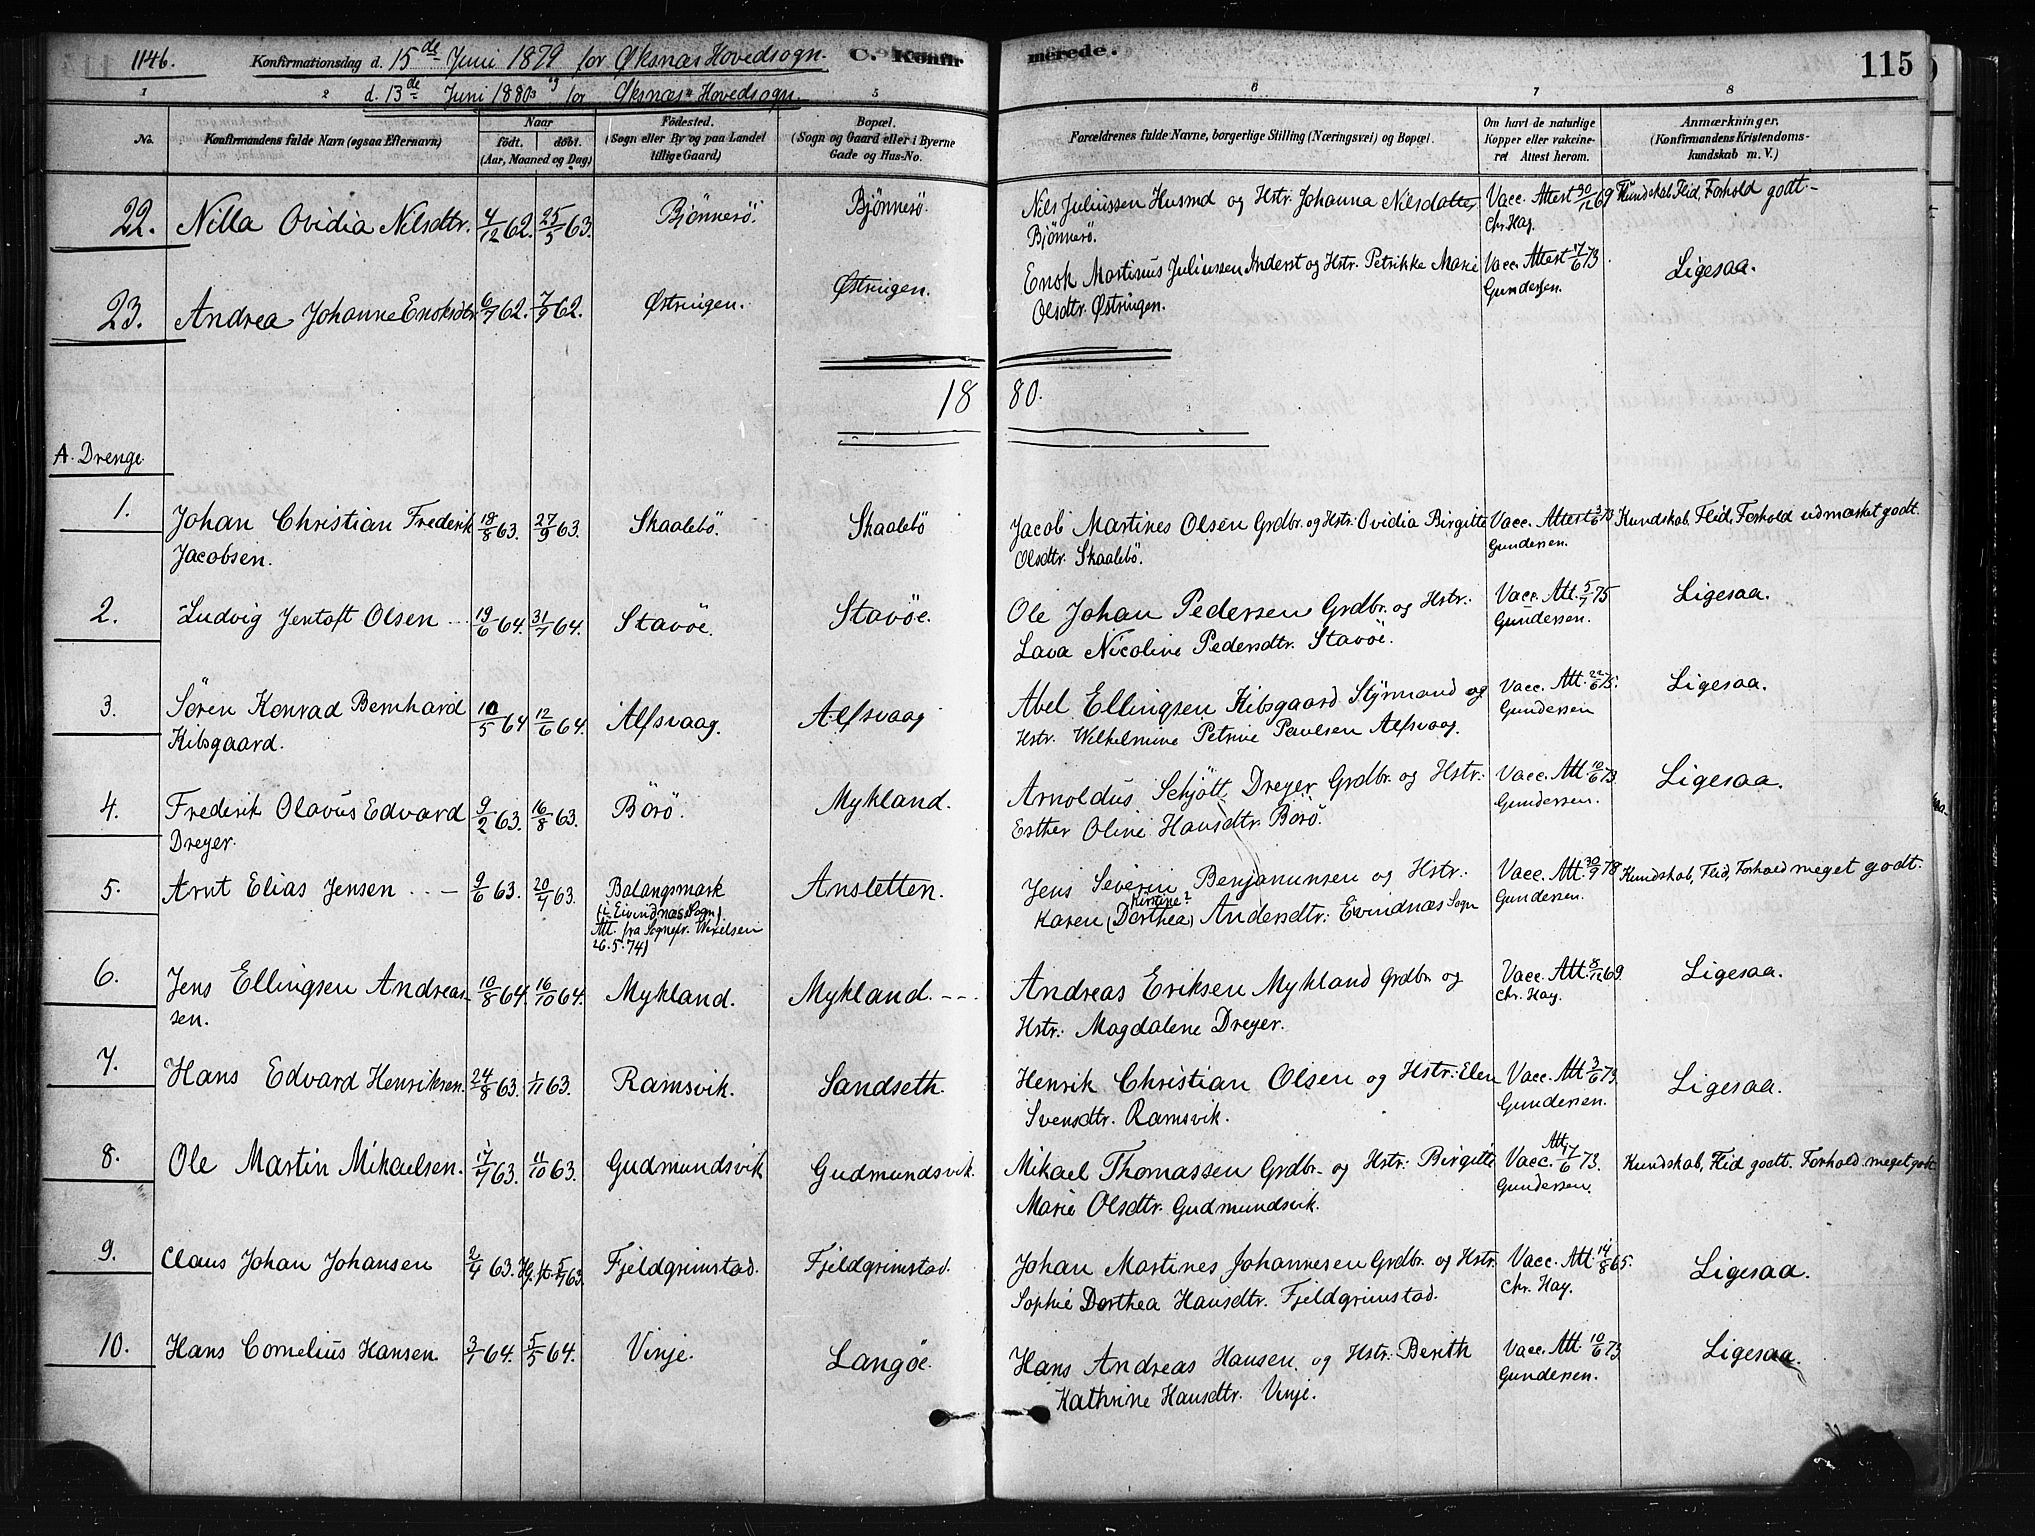 1146. Konfirmationsdag d. 15de Juni 1879 for Øksnæs Hovedsogn. C. Konfirmerede. 115
d. 13de Juni 1880 for Øksnæs Hovedsogn.
1 2 3 5 6 7 8
No. Konfirmandens fulde Navn (ogsaa Efternavn) Naar født. døbt. (Aar, Maaned og Dag) Fødested. (Sogn eller By og paa Landet tillige Gaard) Bopæl. (Sogn og Gaard eller i Byerne Gade og Hus-No. Forældrenes fulde Navne, borgerlige Stilling (Næringsvei) og Bopæl. Om havt de naturlige Kopper eller vakcineret Attest herom. Anmærkninger. (Konfirmandens Kristendomskundskab m. V.)
22. Nilla Ovidia Nilsdtr. 4/12 62. 25/5 63. Bjönnerö. Bjönnerö. Nils Juliussen Husmd og Hstr. Johanna Nilsdatter Vacc. Attest 30/12 69 Kundskab, Flid, Forhold godt.
Bjönnerö. Chr. Hay.
23. Andrea Johanne Enoksdtr. 6/7 62. 7/9 62. Østringen. Østringen. Enok Martinus Juliussen Inderst og Hstr. Petrikke Marie Vacc. Attest 17/6 73. Ligesaa.
Olsdtr. Østringen. Gundersen.
1880.
A. Drenge
1. Johan Christian Frederik 18/8 63. 27/9 63. Skaalebö. Skaalebö Jacob Martines Olsen Grdbr. og Hstr: Ovidia Birgitte Vacc. Attest 3/6 73 Kundskab, Flid, Forhold udmærket godt.
Jacobsen. Olsdtr. Skaalebö. Gundersen.
2. Ludvig Jentoft Olsen 19/6 64. 31/7 64. Stavöe. Stavöe. Ole Johan Pedersen Grdbr. og Hstr: Vacc. Att. 5/7 75 Ligesaa.
Lava Nicoline Pedersdtr. Stavöe. Gundersen.
3. Sören Konrad Bernhard 10/5 64 12/6 64. Alfsvaag. Alfsvaag Abel Ellingsen Kibsgaard Styrmand og Vacc. Att. 22/6 75. Ligesaa.
Kibsgaard. Hstr. Wilhelmine Petrine Paulsen Alfsvaag. Gundersen
4. Frederik Olavus Edvard 9/2 63. 16/8 63. Börö. Mykland. Arnoldus Schjött Dreyer Grdbr. og Hstr: Vacc. Att. 10/6 73 Ligesaa.
Dreyer. Esther Oline Hansdtr. Börö. Gundersen.
5. Arnt Elias Jensen 9/6 63. 20/7 63. Balangsmark Ansletten. Jens Severin Benjaminsen og Hstr: Vacc. Att. 30/9 78 Kundskab, Flid, Forhold meget godt.
(i Eivindnæs Sogn). Karen (Dorthea) Kirstine? Andersdtr: Evindnæs Sogn Gundersen.
Att. fra Sognepr. Wexelsen
26.5.74)
6. Jens Ellingsen Andreas- 10/8 64. 16/10 64. Mykland. Mykland. Andreas Eriksen Mykland Grdbr. og Vacc. Att. 8/12 69. Ligesaa.
sen. Hstr: Magdalene Dreyer. Chr. Hay.
7. Hans Edvard Henriksen. 24/8 63. 1/11 63. Ramsvik. Sandseth. Henrik Christian Olsen og Hstr: Elen Vacc. Att. 3/6 73. Ligesaa.
Svensdtr. Ramsvik. Gundersen.
8. Ole Martin Mikaelsen. 17/7 63. 11/10 63. Gudmundsvik Gudmundsvik. Mikael Thomassen Grdbr. og Hstr: Birgitte Vacc. Att. 17/6 73. Kundskab, Flid godt. Forhold meget godt
Marie Olsdtr. Gudmundsvik. Gundersen.
9. Claus Johan Johansen 2/4 63. Hj. db. 5/4 63. Fjeldgrimstad. Fjeldgrimstad. Johan Martines Johannesen Grdbr. og Hstr. Vacc. Att. 14/8 65. Ligesaa.
Sophie Dorthea Hansdtr. Fjeldgrimstad. Chr. Hay.
10. Hans Cornelius Hansen. 3/1 64. 5/5 64. Vinje. Langöe. Hans Andreas Hansen. og Hstr: Berith Vacc. Att. 10/6 73. Ligesaa.
Kathrine Hansdtr. Vinje. Gundersen.